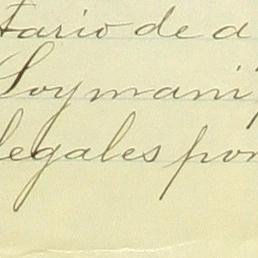 tario de a
Soymani
legales por